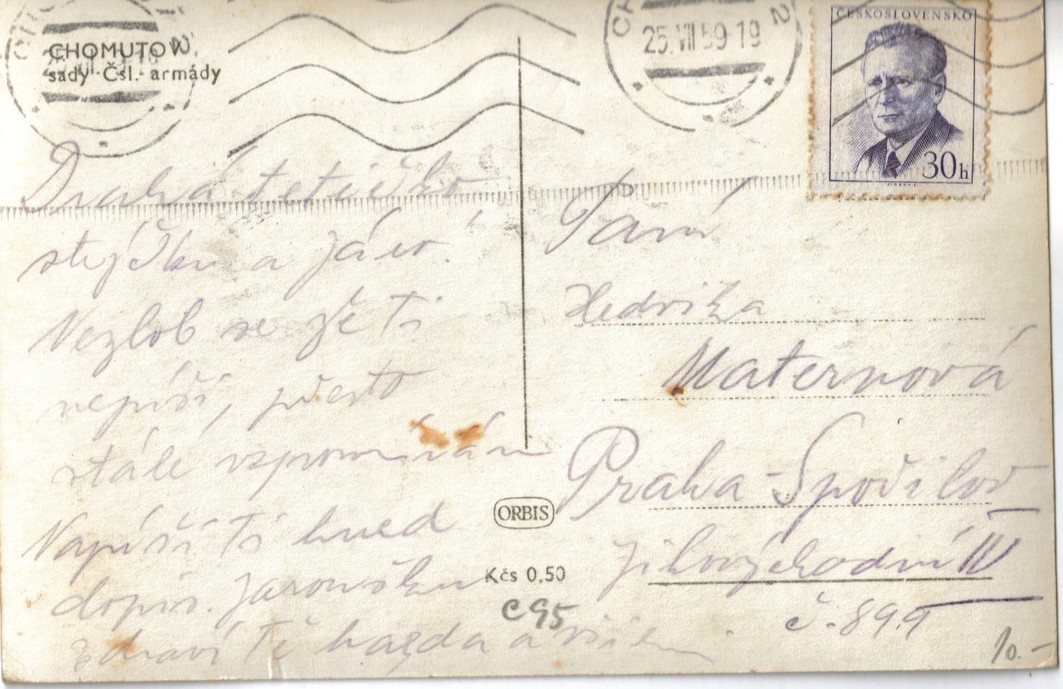 CHOMUTOV
sady Čsl. armády
25.VII.59-19
ČESKOSLOVENSKO
30h
Drahá tetičko
strýčku a
Nezlob se že ti
nepíši, přesto
stále vzpomínám
Napíši Ti hned
dopis.
zdraví Tě a
Paní
Hedvika
Maternová
Praha-Spořilov
Jihovýchodní IV
č. 899
ORBIS
Kčs 0,50
C95
10.-